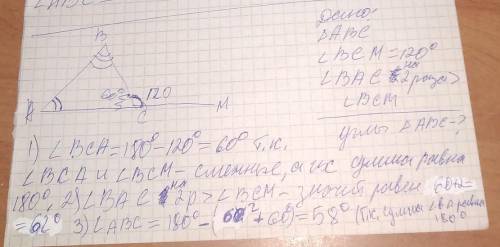 Дано:
ΔABC
∠BCM=120°
∠BAC на 2 раза >
∠BCM
углы ΔABC-?
B
60° 120
A C M
1) ∠BCA=180°-120°=60° т.к.
∠BCA и ∠BCM - смежные, а их сумма равна
180°. 2) ∠BAC на 2р > ∠BCM - значит равен 60+2=
=62° 3) ∠ABC = 180° - (62+60)°=58° (т.к. сумма ∠ Δ равна
180°